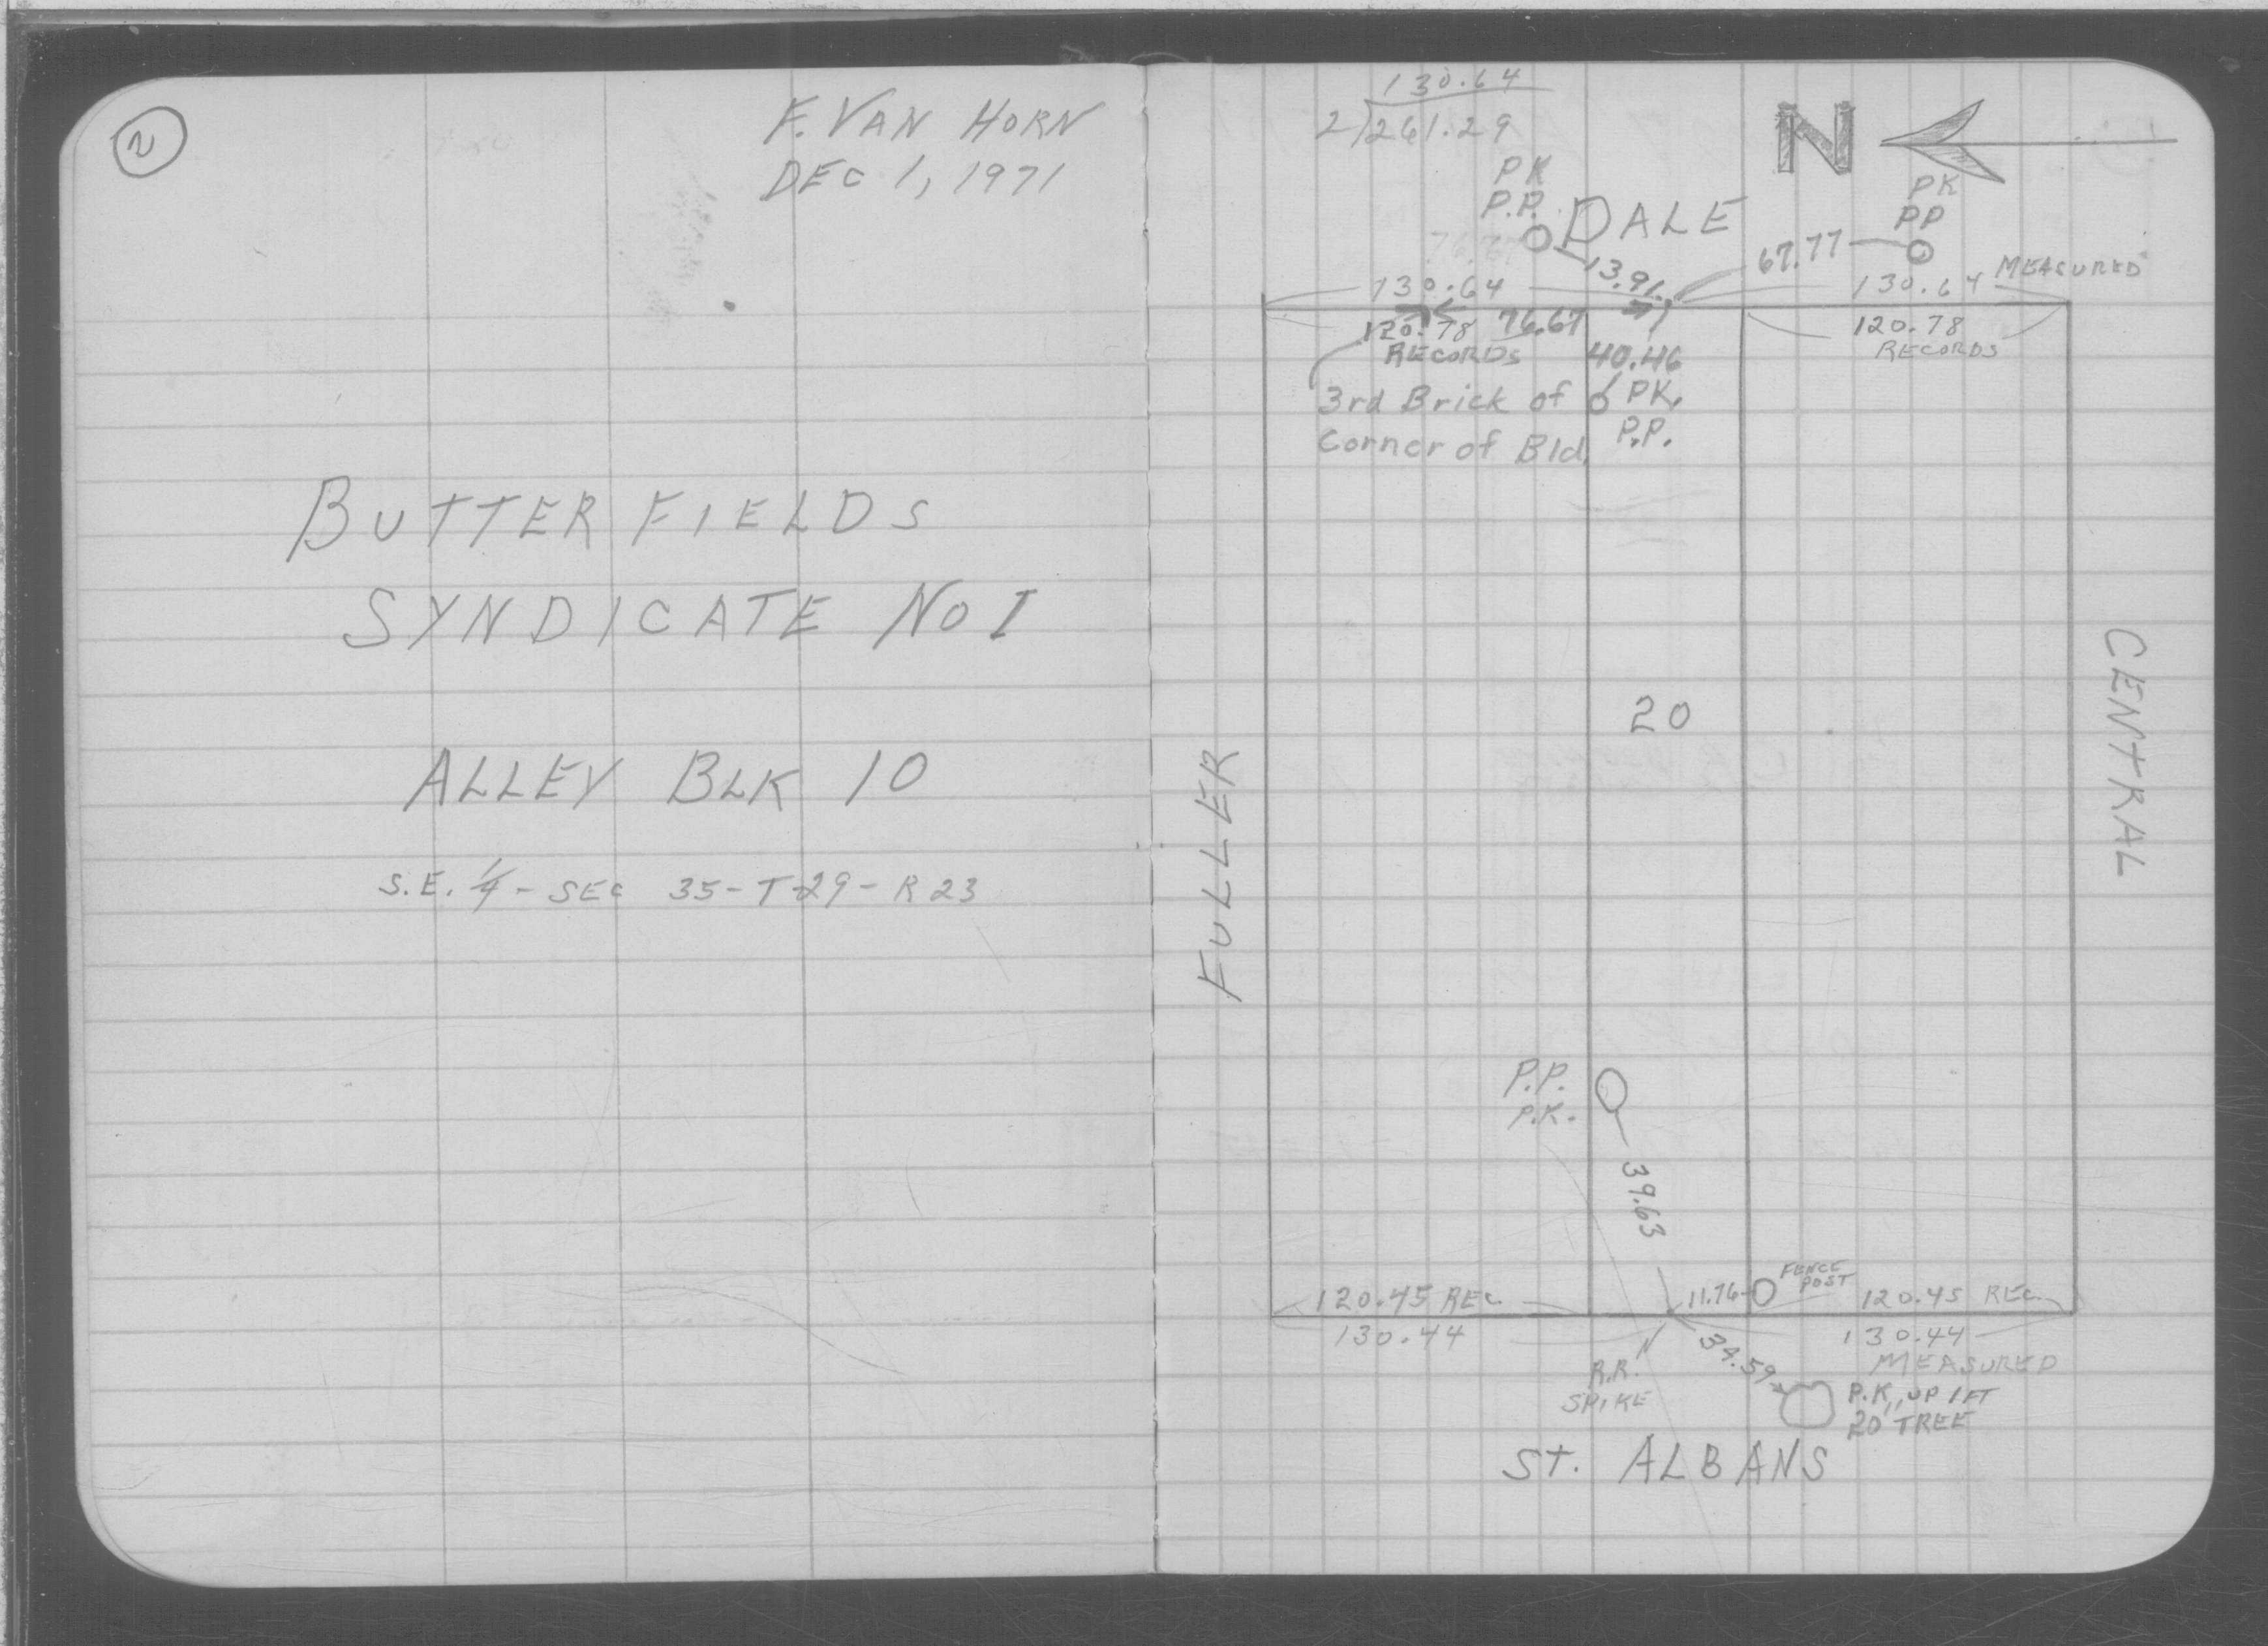 2
F. VAN HORN
DEC 1, 1971
BUTTERFIELDS
SYNDICATE NO I
ALLEY BLK 10
S.E. 1/4 - SEC 35 - T-29 - R 23
130.64
2)261.29
N
PK
P.P.
DALE
PK
PP
76.67
13.91
67.77
130.64
130.64 MEASURED
120.78
RECORDS
76.67
40.46
120.78
RECORDS
3rd Brick of
Corner of Bld.
PK.
P.P.
20
FULLER
CENTRAL
P.P.
P.K.
39.63
11.76
FENCE
POST
120.45 REC
120.45 REC
130.44
130.44
MEASURED
R.R.
SPIKE
34.59
P.K. UP 1 FT
20" TREE
ST. ALBANS